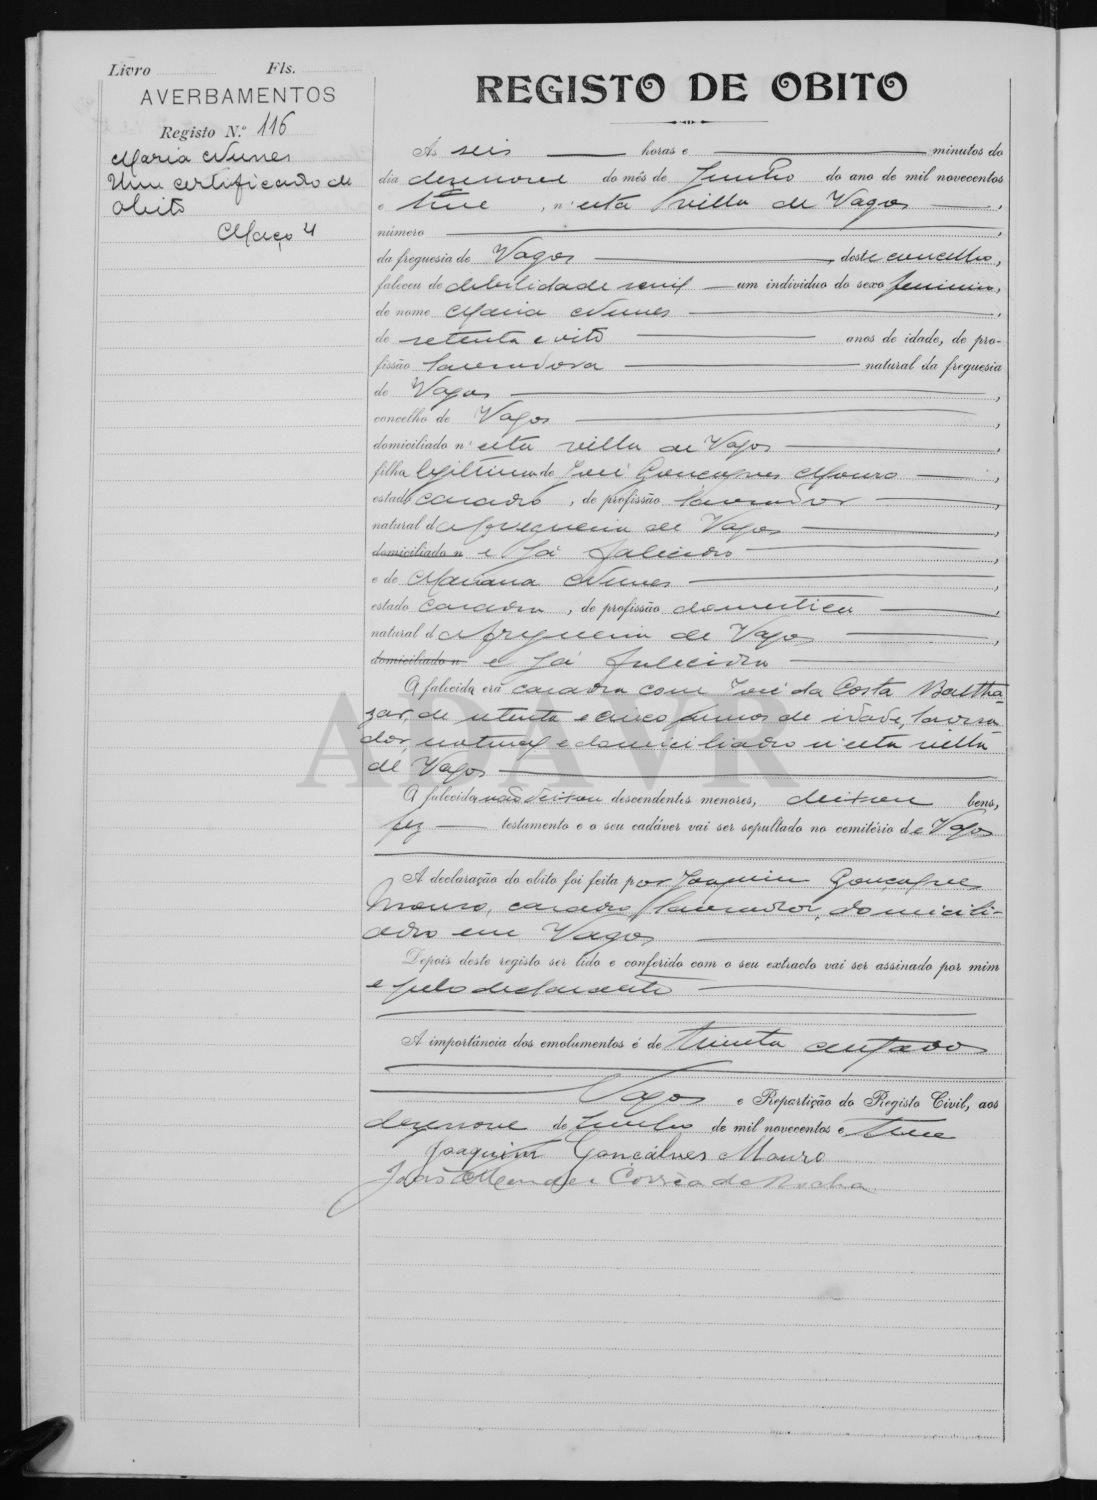 Livro Fls.
AVERBAMENTOS
Registo N.º 116
Maria Nunes
Um certificado de
obito
Maço 4
REGISTO DE OBITO
Ás seis horas e minutos do
dia dezenove do mês de Junho do ano de mil novecentos
e treze, n'esta villa de Vagos,
número,
da freguesia de Vagos, deste concelho,
faleceu de debilidade senil um individuo do sexo feminino,
de nome Maria Nunes,
de setenta e oito anos de idade, de pro-
fissão lavradora natural da freguesia
de Vagos,
concelho de Vagos,
domiciliado n'esta villa de Vagos,
filha legitima de José Gonçalves Mouro,
estado casado, de profissão lavrador,
natural da freguesia de Vagos,
domiciliado n e já falecido,
e de Mariana Nunes,
estado casada, de profissão domestica,
natural da freguesia de Vagos,
domiciliado n e já falecida
A falecida era casada com José da Costa Baltha-
zar, de setenta e cinco annos de idade, lavra-
dor, natural e domiciliado n'esta villa
de Vagos
A falecida não deixou descendentes menores, deixou bens,
fez testamento e o seu cadáver vai ser sepultado no cemitério de Vagos
A declaração do obito foi feita por Joaquim Gonçalves
Mouro, casado, lavrador, domicili-
ado em Vagos
Depois deste registo ser lido e conferido com o seu extracto vai ser assinado por mim
e pelo declarante
A importância dos emolumentos é de trinta centavos
Vagos e Repartição do Registo Civil, aos
dezenove de Junho de mil novecentos e treze
Joaquim Gonçalves Mouro
João Mendes Corrêa da Rocha
ADAVR